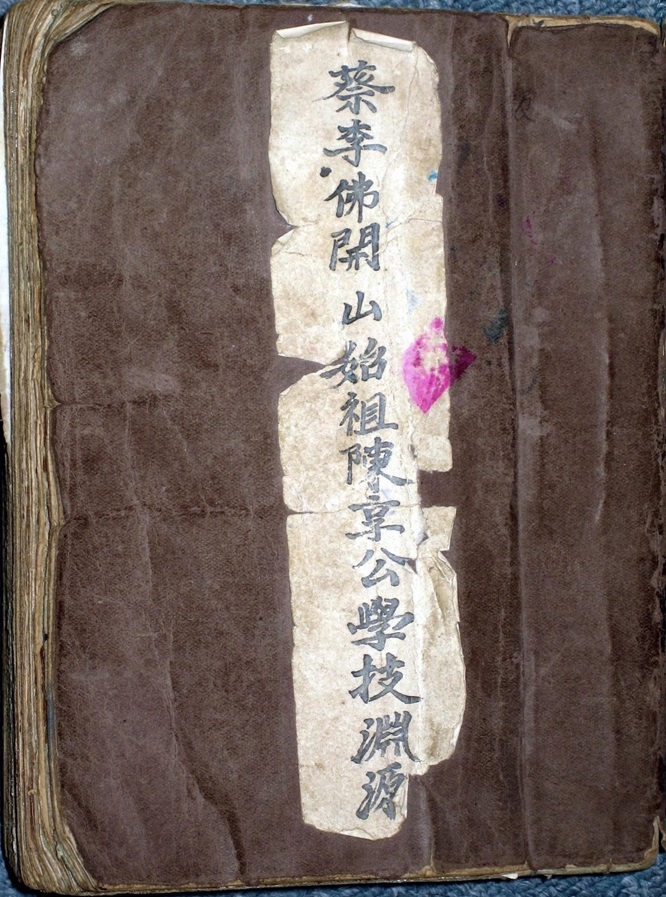 蔡李佛開山始祖陳享公學技淵源